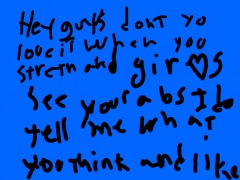 Hey guys dont yo
love it when you
stretn and girls
see your abs I do
tell me what
you think and like